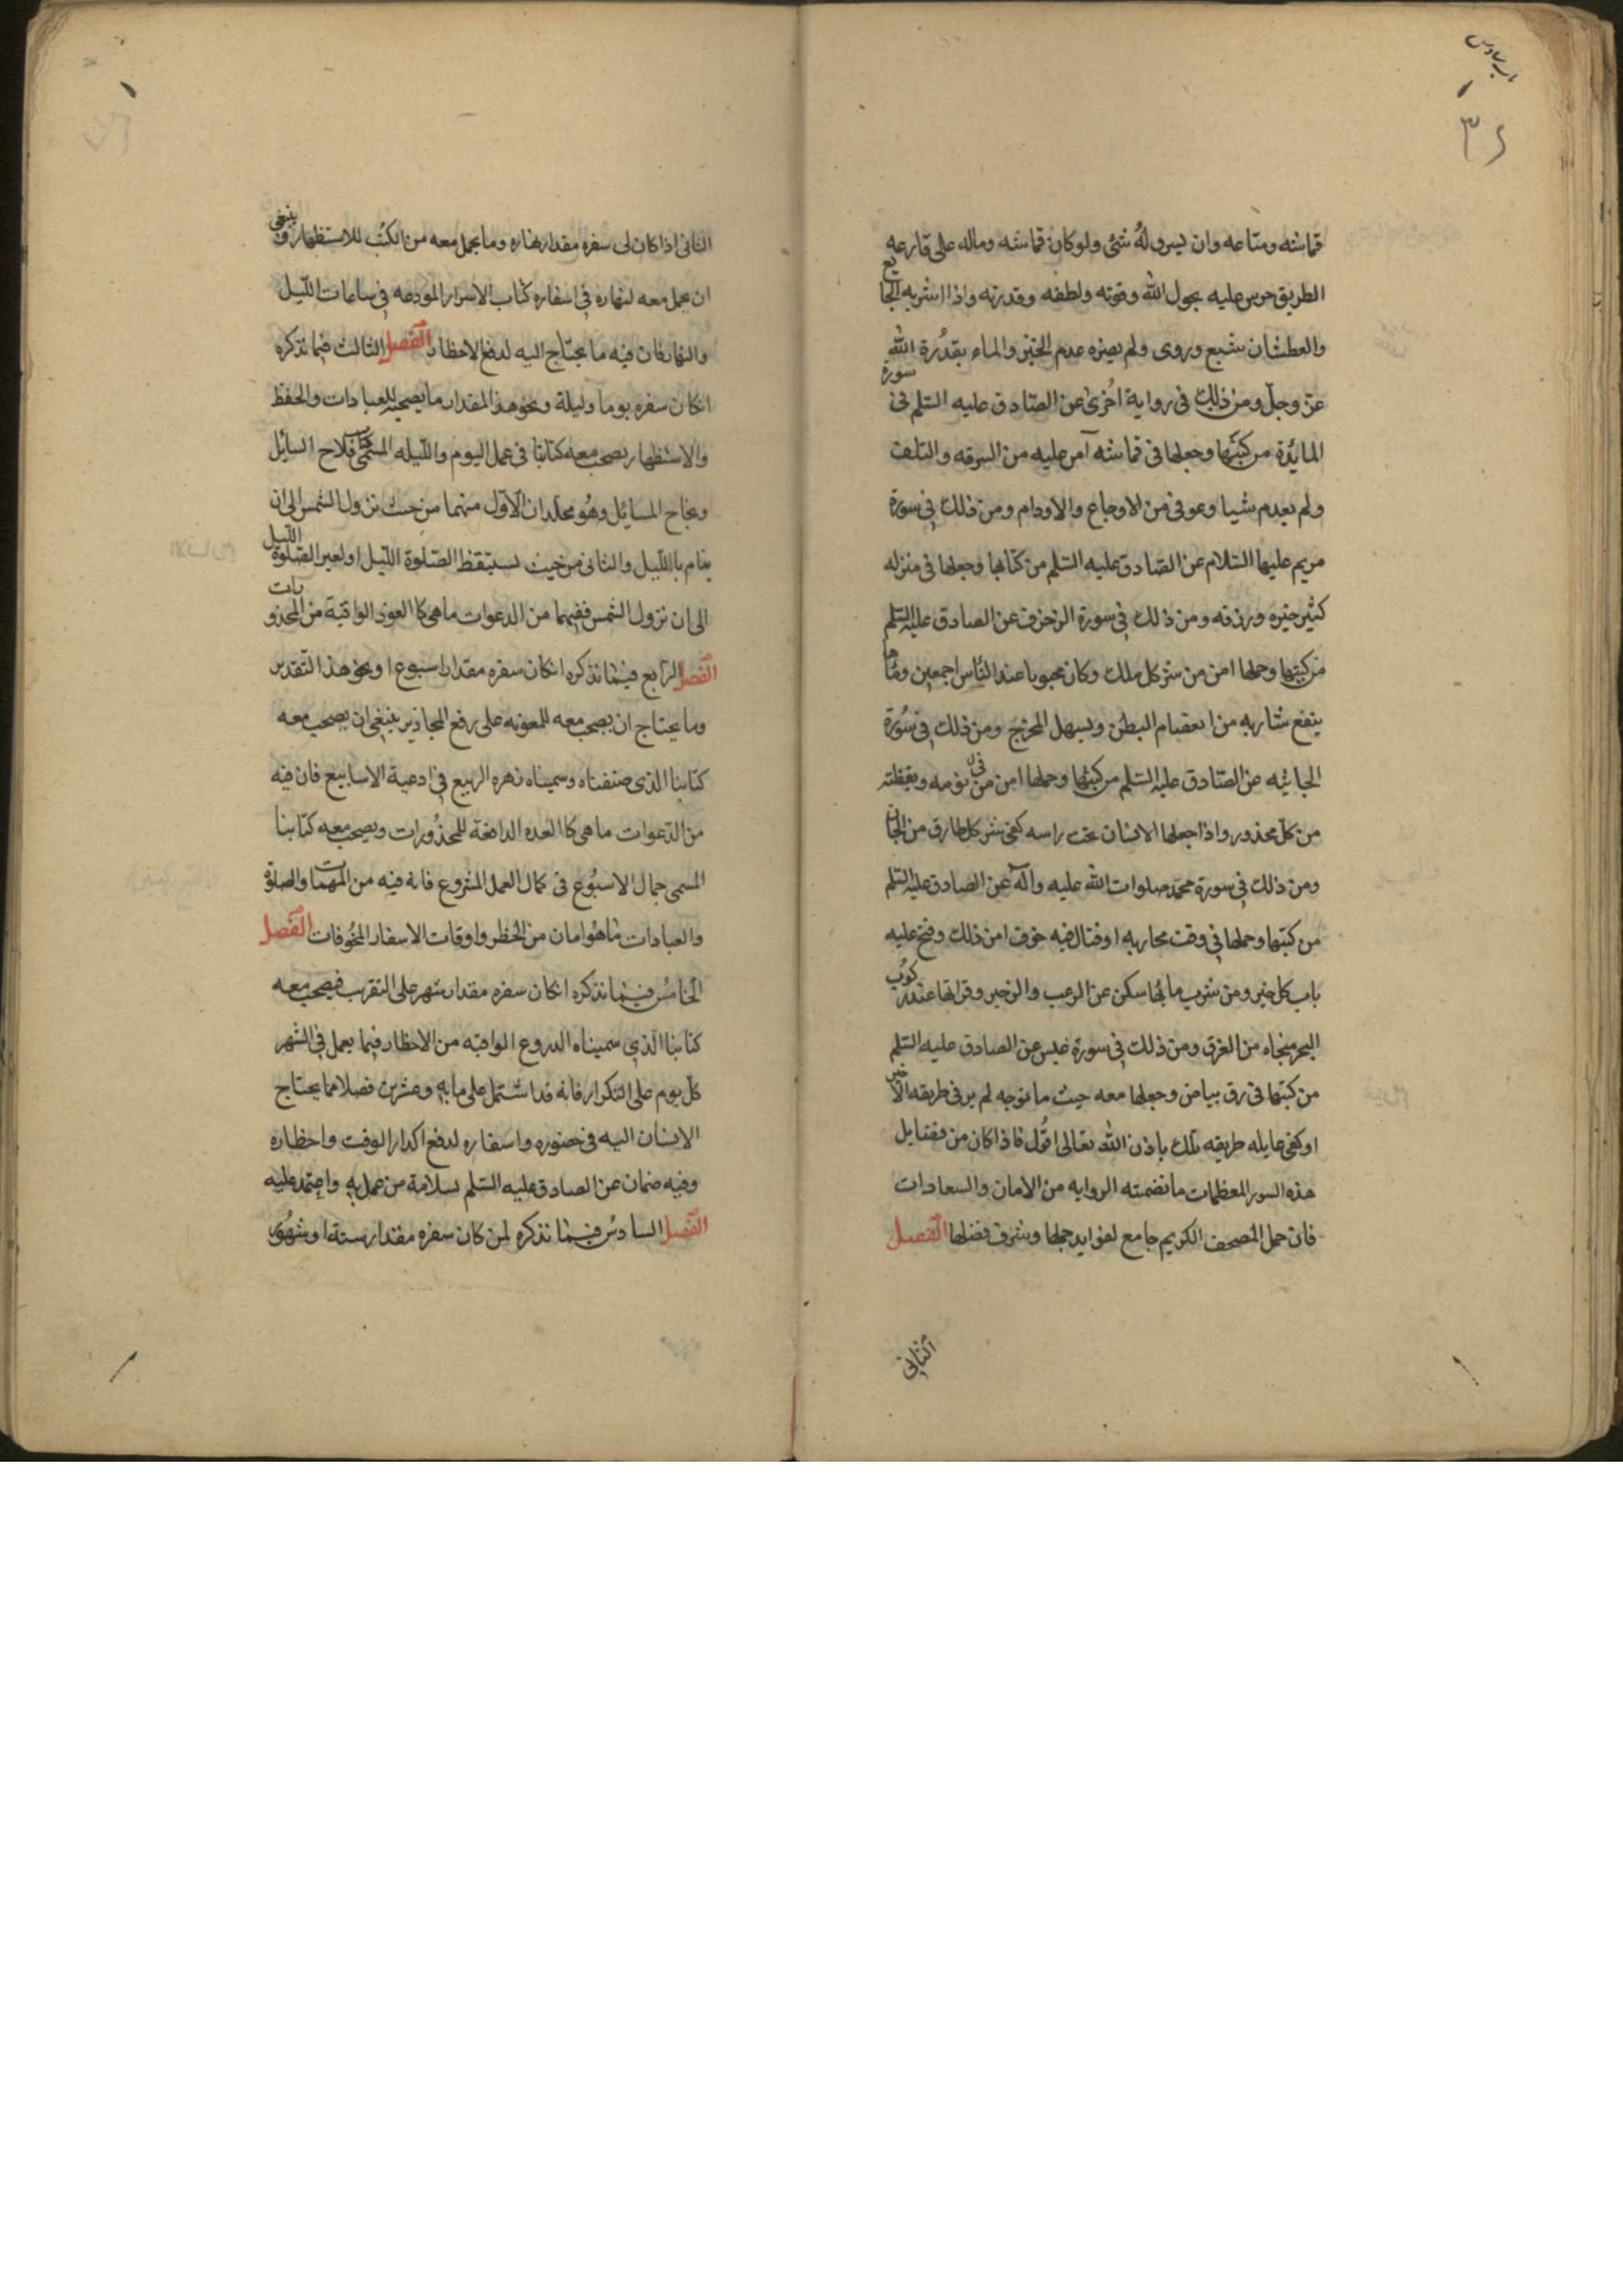 باب سادس
٣٤
قماشه ومتاعه وان يسرق له شئ ولو كان قماشه وماله على قارعه
الطريق حرس عليه بحول الله وقوته ولطفه وقدرته واذا شربه الجايع
والعطشان شبع وروى ولم يضره عدم الخبز والماء بقدرة الله
عز وجل ومن ذلك فى رواية اخرى عن الصادق عليه السلم فى سورة
المائدة من كتبها وجعلها فى قماشه آمن عليه من السرقه والتلف
ولم يعدم شيا وعوفى من الاوجاع والاورام ومن ذلك فى سورة
مريم عليها السلام عن الصادق عليه السلم من كتابها وجعلها فى منزله
كثير خيره ورزقه ومن ذلك فى سورة الزخرف عن الصادق عليه السلم
من كتبها وحملها امن من شر كل ملك وكان محبوبا عند الناس اجمعين وماها
ينفع شاربه من انعصام البطن ويسهل المخرج ومن ذلك فى سورة
الجاثيه عن الصادق عليه السلم من كتبها وحملها امن من فى نومه ويقظته
من كل محذور واذا جعلها الانسان تحت راسه كفى شر كل طارق من الجان
ومن ذلك فى سورة محمد صلوات الله عليه وآله عن الصادق عليه السلم
من كتبها وحملها فى وقت محاربه او قتال فيه خوف امن ذلك وفتح عليه
باب كل خير ومن شرب مائها سكن عن الرعب والزحير وقراتها عند ركوب
البحر منجاه من الغرق ومن ذلك فى سورة عبس عن الصادق عليه السلم
من كتبها فى رق بياض وجعلها معه حيث ما توجه لم ير فى طريقه الا خير
او كفى غايله طريقه تلك باذن الله تعالى اقول فاذا كان من فضايل
هذه السور المعظمات ما تضمنته الروايه من الامان والسعادات
فان حمل المصحف الكريم جامع لفوايد حملها وشرف فضلها الفصل
الثانى
الثانى اذا كان لى سفره مقدار نهاره وما يحمل معه من الكتب للاستظهار وينبغى
ان يحمل معه لنهاره فى اسفاره كتاب الاسرار المودعه فى ساعات الليل
والنهار فان فيه ما يحتاج اليه لدفع الاخطار الفصل الثالث فيما نذكره
انكان سفره يوما وليلة ونحو هذا المقدار ما يصحبه للعبادات والحفظ
والاستظهار يصحب معه كتابنا فى عمل اليوم والليله المسمى كتاب فلاح السايل
ونجاح المسايل وهو مجلدان الاول منهما من حيث نزول الشمس الى ان
ينام باالليل والثانى من حيث يستيقظ الصلوة الليل او لغير الصلوة الليل
الى ان نزول الشمس ففيهما من الدعوات ما هى كا العوذ الواقية من المحذورات
الفصل الرابع فيما نذكره انكان سفره مقدار اسبوع او نحو هذا التقدير
وما يحتاج ان يصحب معه للمعونه على رفع المحاذير ينبغى ان يصحب معه
كتابنا الذى صنفناه وسميناه زهره الربيع فى ادعية الاسابيع فان فيه
من الدعوات ما هى كا العده الدافعة للمحذورات ويصحب معه كتابنا
المسمى جمال الاسبوع فى كمال العمل المشروع فانه فيه من المهمات والصلوة
والعبادات ما هو امان من الخطر واوقات الاسفار المخوفات الفصل
الخامس فيما نذكره انكان سفره مقدار شهر على التقريب فيصحب معه
كتابنا الذى سميناه الدروع الواقيه من الاخطار فيما يعمل فى الشهر
كل يوم على التكرار فانه قد اشتمل على مايه وعشرين فصلا مما يحتاج
الانسان اليه فى حضوره واسفاره لدفع اكدار الوقت واخطاره
وفيه ضمان عن الصادق عليه السلم بسلامة من عمل به واعتمد عليه
الفصل السادس فيما نذكره لمن كان سفره مقدار سنة او شهور